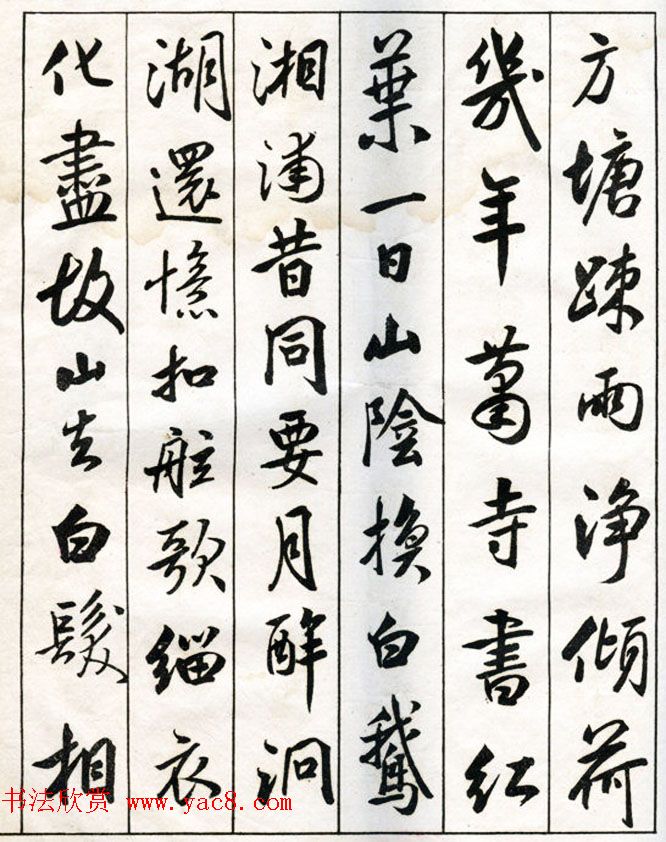 方塘踈雨淨傾荷
幾年蕭寺書紅
葉一日山陰換白鵝
湘浦昔同要月醉洞
湖還憶扣舷歌緇衣
化盡故山去白髮相
书法欣赏 www.yac8.com